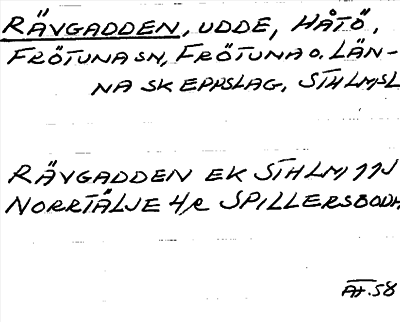 RÄVGADDEN, UDDE, HÅTÖ,
FRÖTUNA SN, FRÖTUNA O. LÄN-
NA SKEPPSLAG, STHLMSL
RÄVGADDEN EK STHLM 11J
NORRTÄLJE 4/R SPILLERSBODA
AT.58